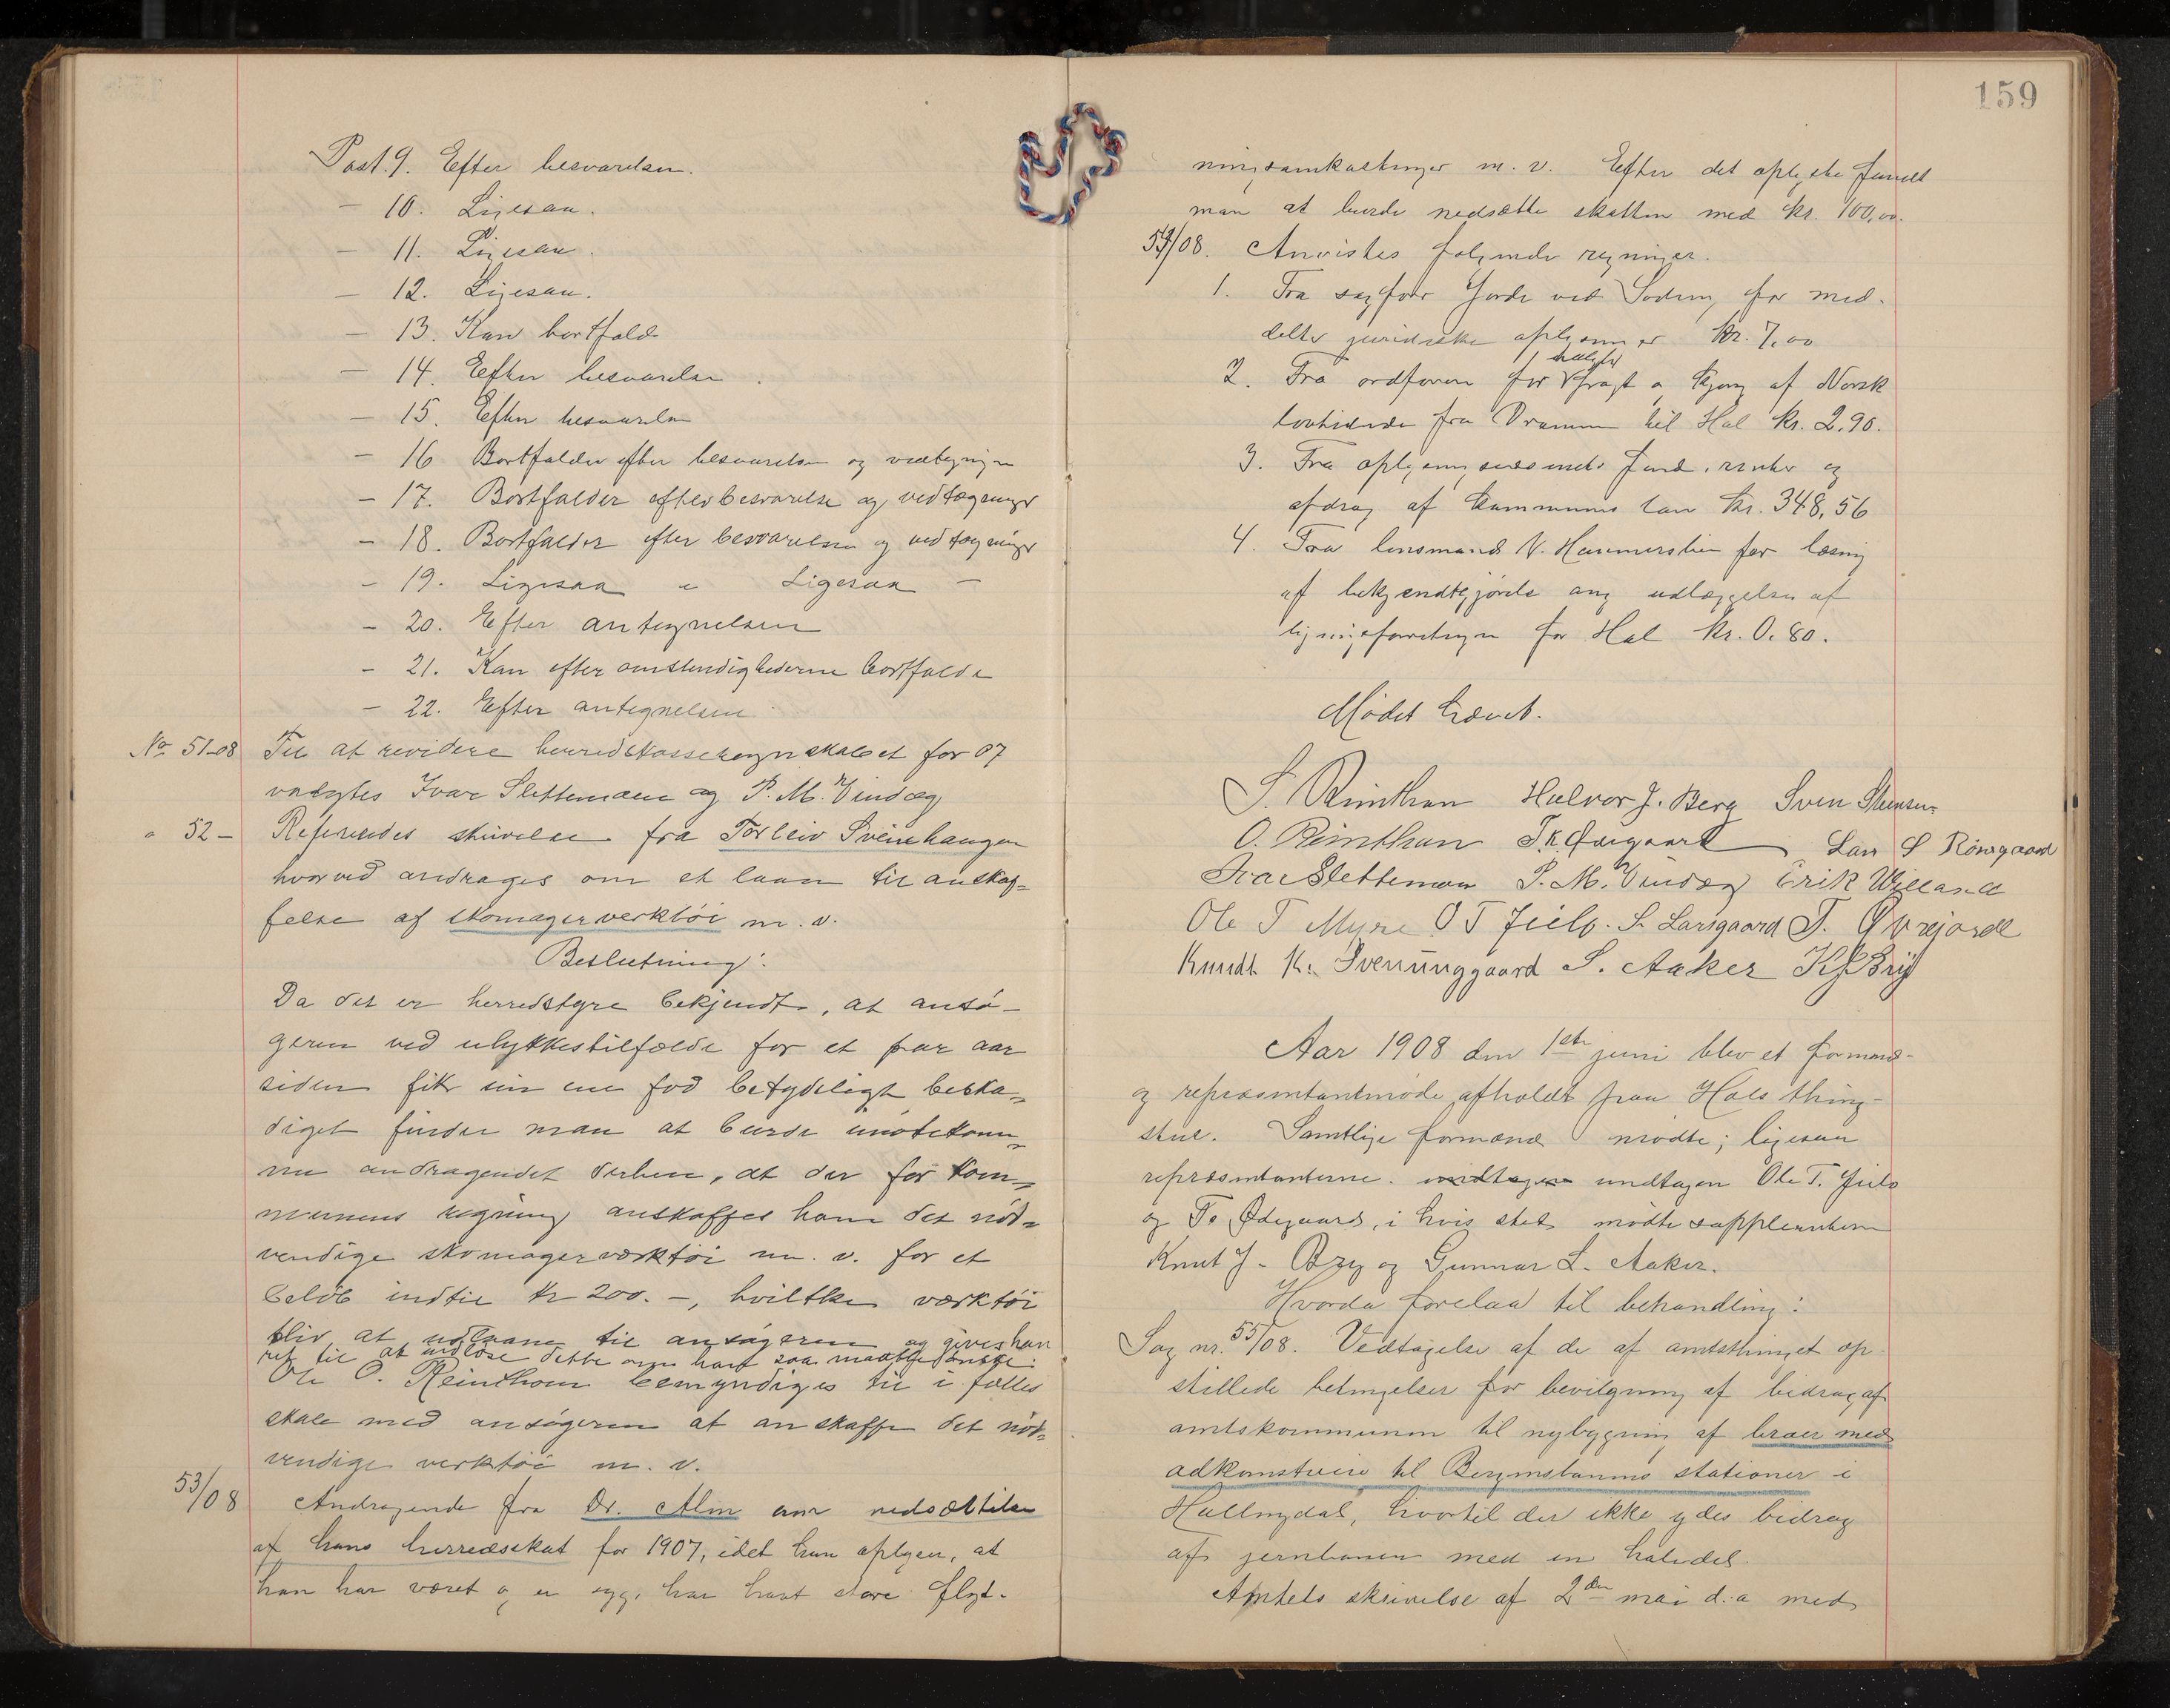 Post. 9. Efter besvarelsen.
– 10. Ligesaa.
– 11. Ligesaa.
– 12. Ligesaa.
– 13. Kan bortfalde
– 14. Efter besvarelse.
– 15. Efter besvarelse
– 16 Bortfalder efter besvarelsen og vedtegninger
– 17. Bortfalder efter besvarelse og vedtegninger
– 18. Bortfalder efter besvarelsen og vedtegninger
– 19. Ligesaa Ligesaa –
– 20. Efter antegnelsen
– 21. Kan efter omstendighederne bortfalde
– 22. Efter antegnelsen
No 51-08 Til at revidere herredskasseregnskabet for 07
valgtes Ivar Slettemoen og P. M. Vindeg
" 52 – Refereredes skrivelse fra Torleiv Sveinhaugen
hvorved andrages om et laan til anskaf-
felse af skomagerverktøi m. v.
Beslutning:
Da det er herredstyre bekjendt, at ansø-
geren ved ulykkestilfælde for et par aar
siden fik sin ene fod betydeligt beska-
diget finder man at burde imøtekom-
me andragendet derhen, at der for kom-
munens regning anskaffes ham det nød-
vendige skomagerverktøi m. v. for et
beløb indtil kr 200.–, hvilket værktøi
bliv at udlaane til ansøgeren og gives han
ret til at indløse dette om han saa maatte ønske.
Ole O. Reinthon bemyndiges til i felles
skab med ansøgeren at anskaffe det nød-
vendige verktøi m. v.
53/08 Andragende fra Dr. Alm om nedsættelse
af hans herredsskat for 1907, idet han oplyser, at
han har været og er syg, har havt store flyt-
159
ningsomkostninger m. v. Efter det oplyste fandt
man at burde nedsætte skatten med kr. 100,00.
54/08. Anvistes følgende regninger.
1. Fra sagfører Jorde ved Soding for med-
delte juridiske oplysninger kr. 7,00
2. Fra ordføreren for udlagte fragt og kjøring af Norsk
lovtidende fra Drammen til Hol kr. 2,90.
3. Fra oplysningsvæsenets fond, renter og
afdrag af kommunens laan kr. 348,56
4. Fra lensmand N. Hammersbøen for læsning
af bekjendtgjørelse ang udlæggelse af
ligningsforretningen for Hol kr. 0.80.
Mødet hævet.
S. Reinthon Halvor J. Berg Sven Steinsen
O. Reinthon T. K. Ødegaard Lars S Rønsgaard
Ivar Slettemoen P. M. Vindeg Erik Willand
Ole T Myre O T Juelo. S. Larsgaard T. Øvrejorde
Knudt K. Svenunggaard S. Aaker K J Bry
Aar 1908 den 1ste juni blev et formand-
og repræsentantmøde afholdt paa Hols thing-
stue. Samtlige formænd mødte; ligesaa
repræsentanterne. undtagen undtagen Ole T. Juelo
og T. Ødegaard, i hvis sted mødte suppleanterne
Knut J. Bry og Gunnar L. Aaker.
Hvorda forelaa til behandling:
Sag nr. 55/08. Vedtagelse af de af amtsthinget op-
stillede betingelser for bevilgning af bidrag af
amtskommunen til nybygning af broer med
adkomstveie til Bergensbanens stationer i
Hallingdal, hvortil der ikke ydes bidrag
af jernbanen med en halvdel.
Amtets skrivelse af 2den mai d. a med